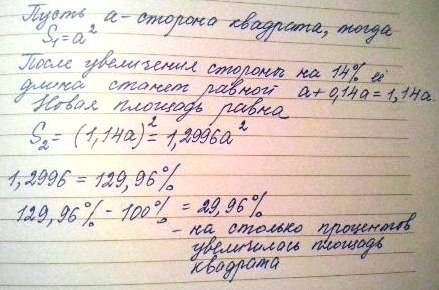 Пусть а - сторона квадрата, тогда
S₁=a²
После увеличения стороны на 14% её
длина станет равной a+0,14a=1,14a.
Новая площадь равна
S₂=(1,14a)²=1,2996a²
1,2996=129,96%
129,96%-100%=29,96%
- на столько процентов
увеличилась площадь
квадрата